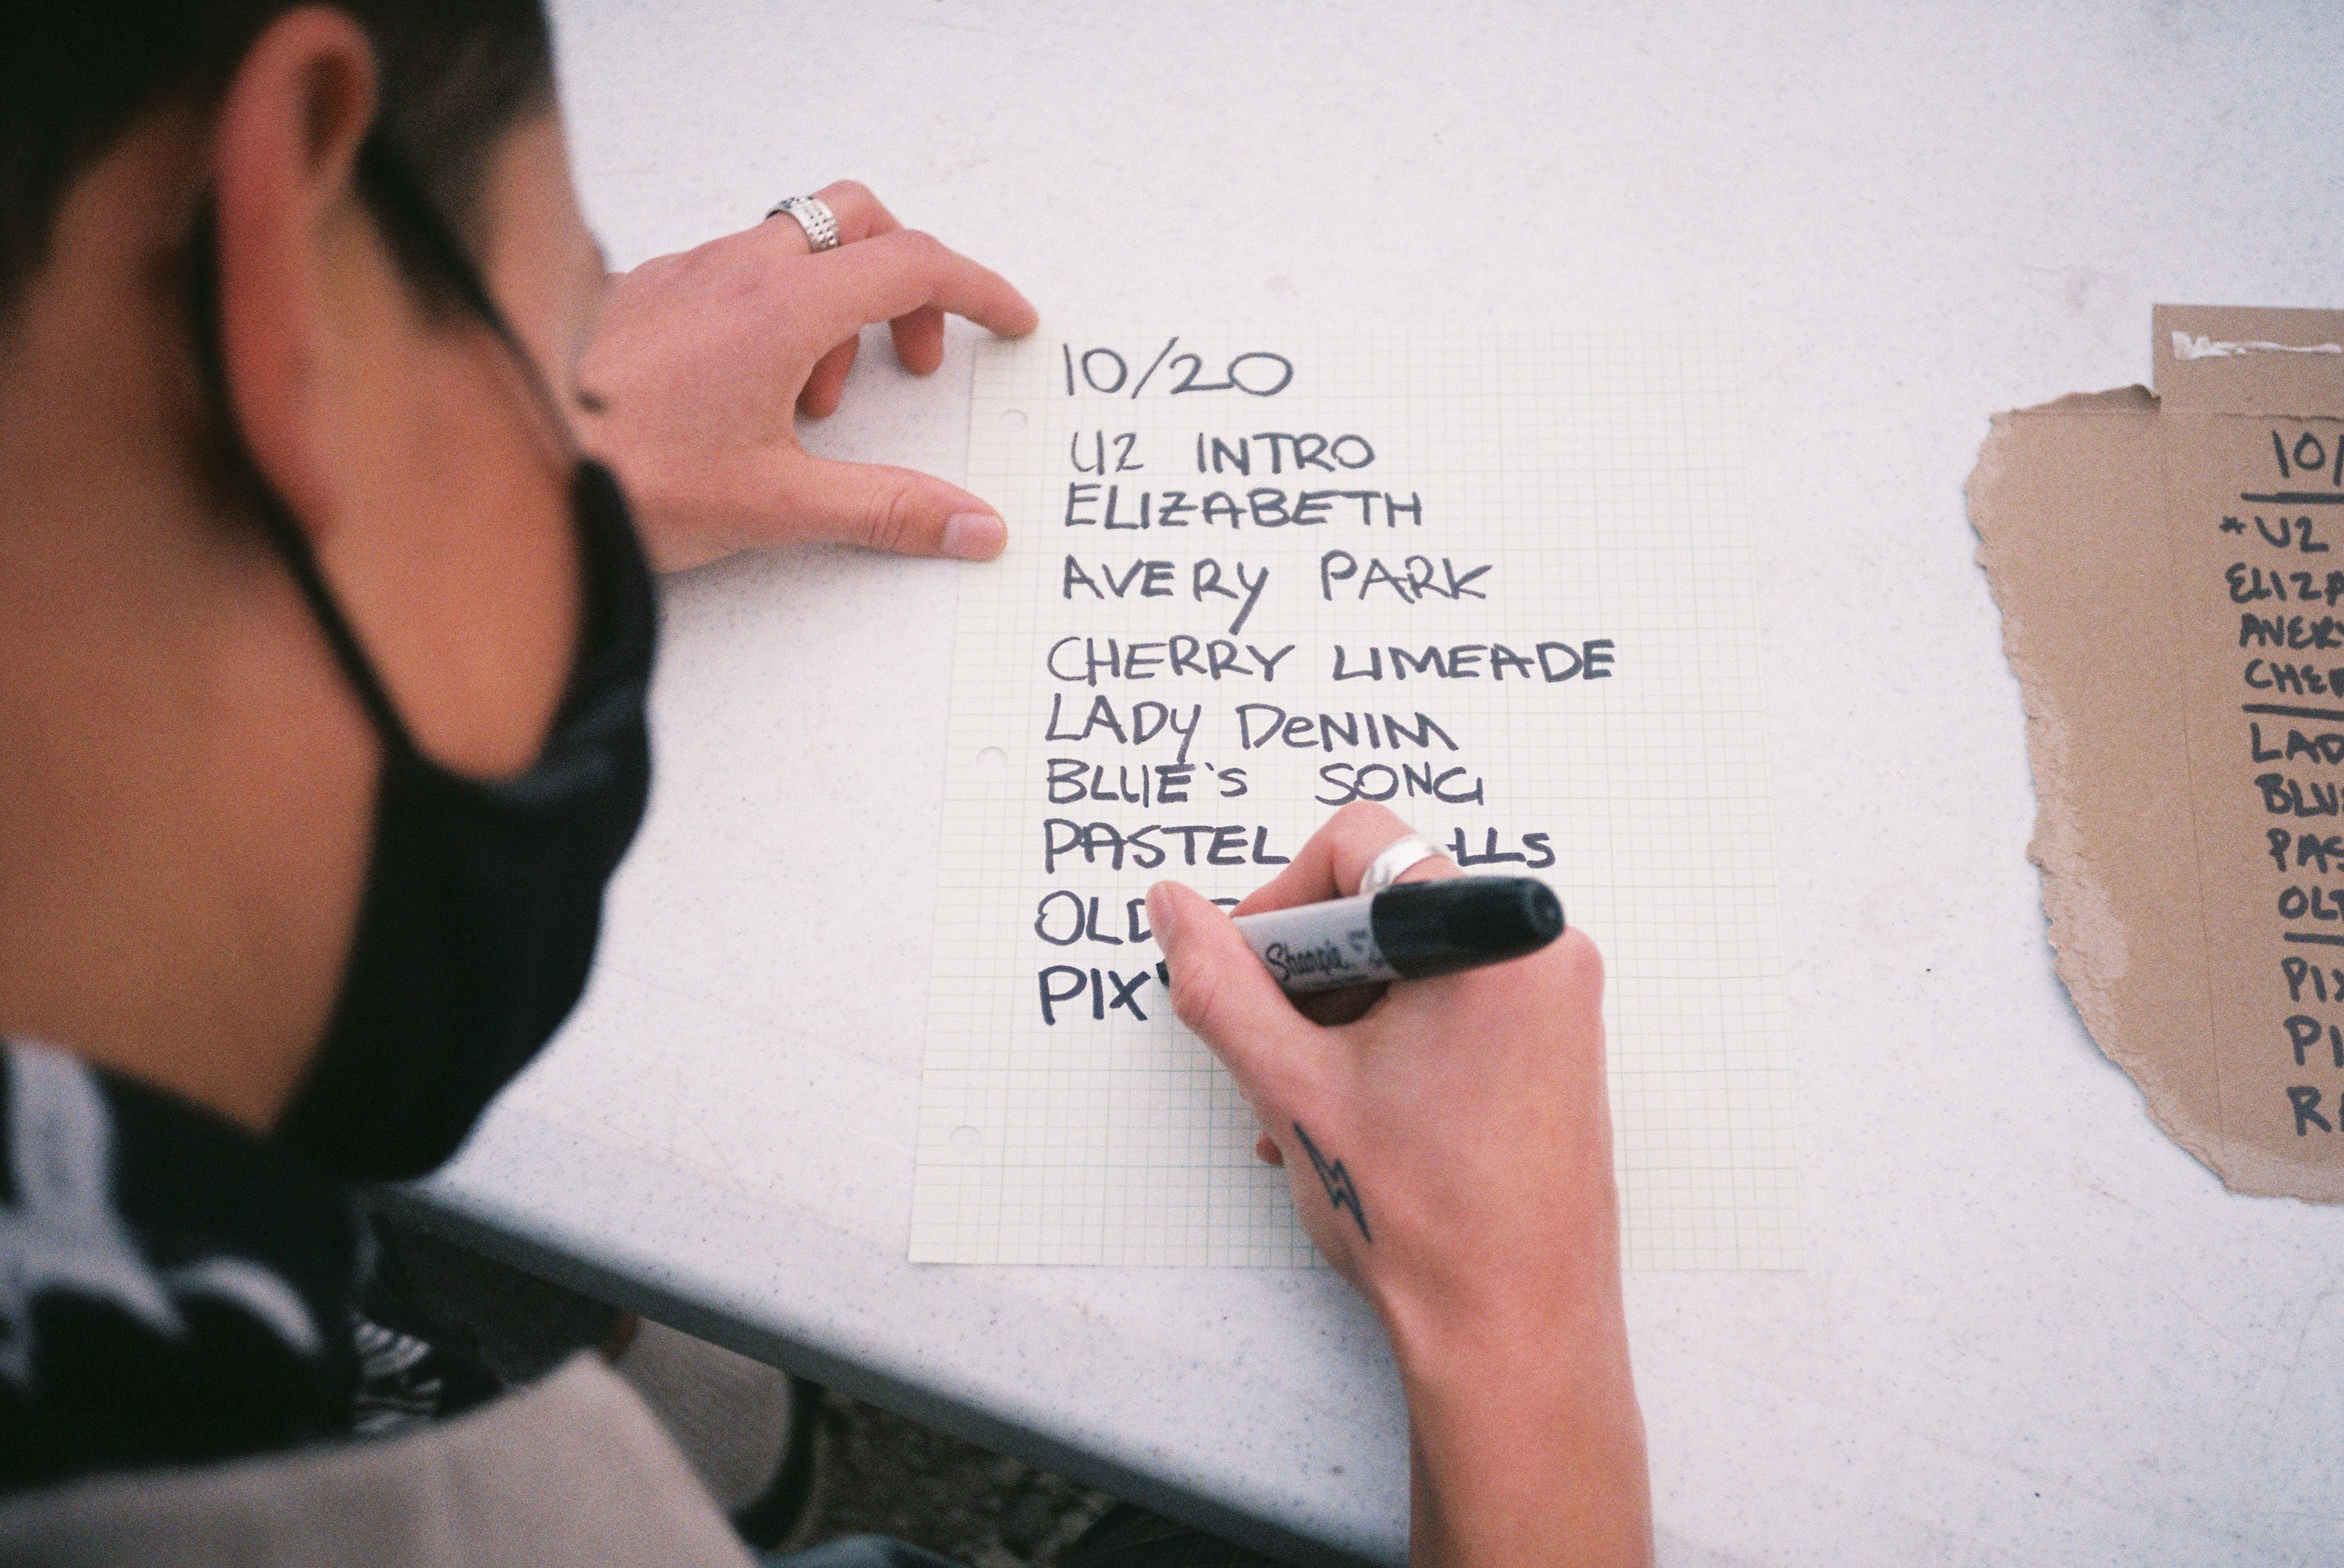 10/20
U2 INTRO
ELIZABETH
AVERY PARK
CHERRY LIMEADE
LADY DeNIM
BLUE'S SONG
PASTEL
OLD
PIX
Sharpie
10/
*U2
ELIZA
AVERY
CHER
LAD
BLUE
PAS
OL
PIX
PI
R